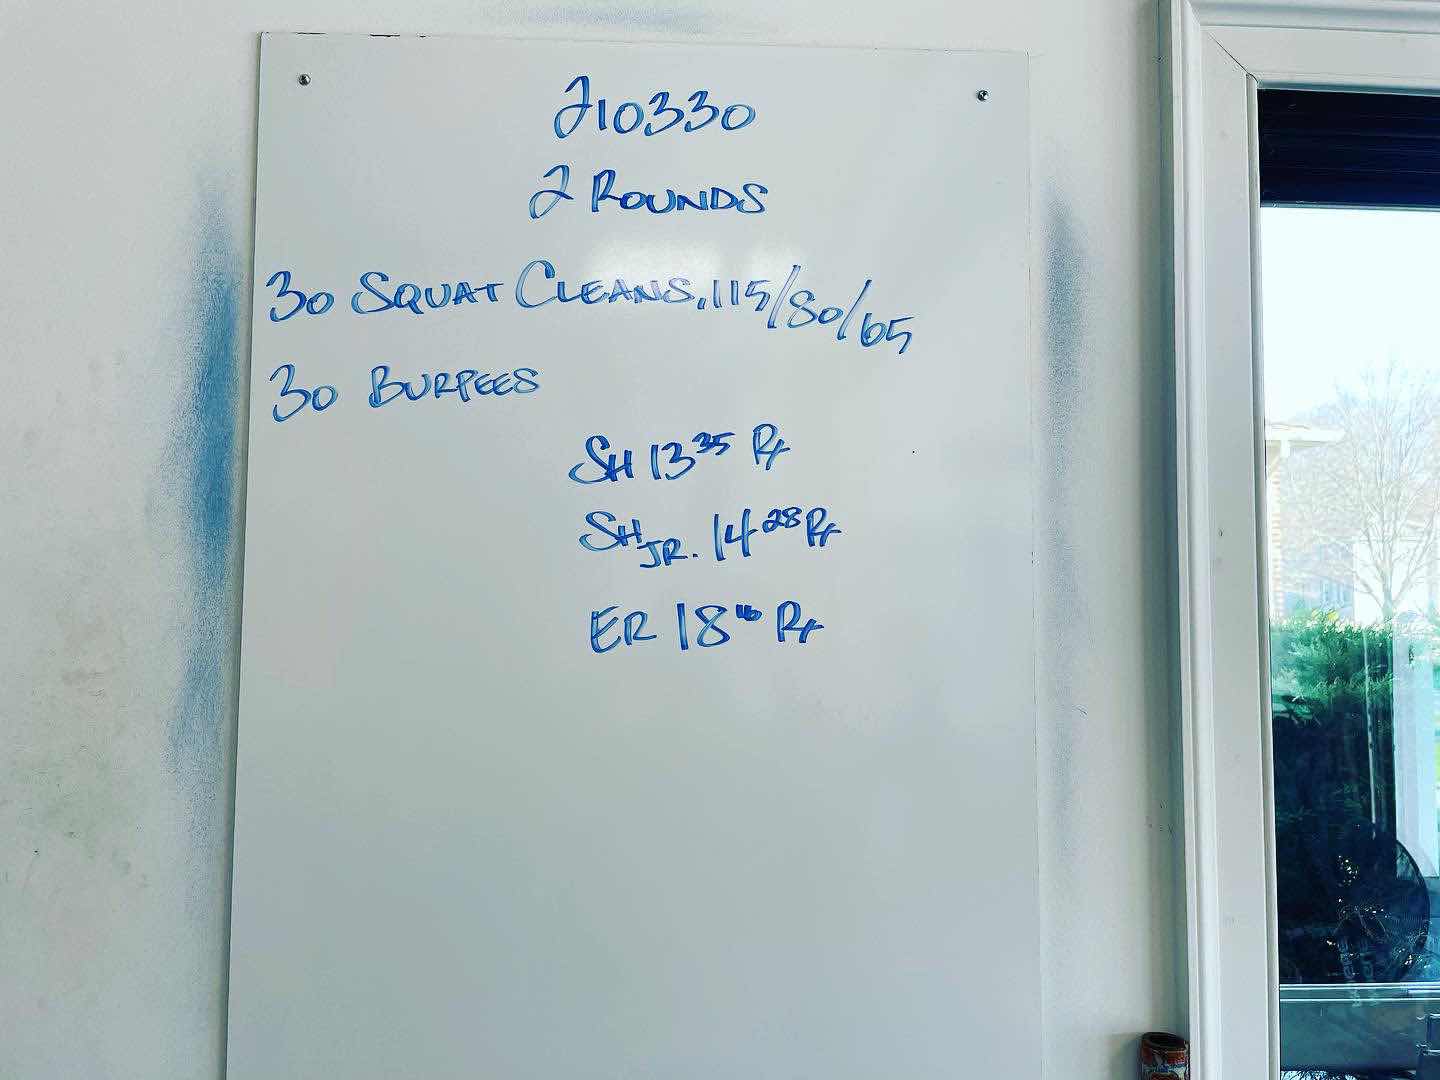 210330
2 ROUNDS
30 SQUAT CLEANS, 115/80/65
30 BURPEES
SH 13 35 Rx
SH JR. 14 28 Rx
ER 18 16 Rx